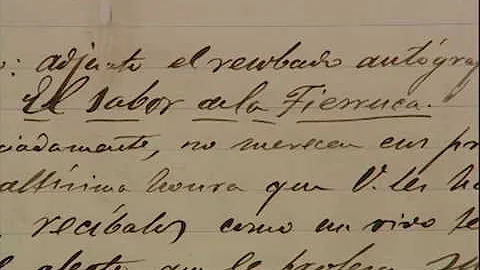 o: adjunto el recabado autógra
El Sabor de la Tierruca.
ciadamente, no merecen sus pr
altísima honra que V. les ha
recíbalos como un vivo te
l afecto que le profesa